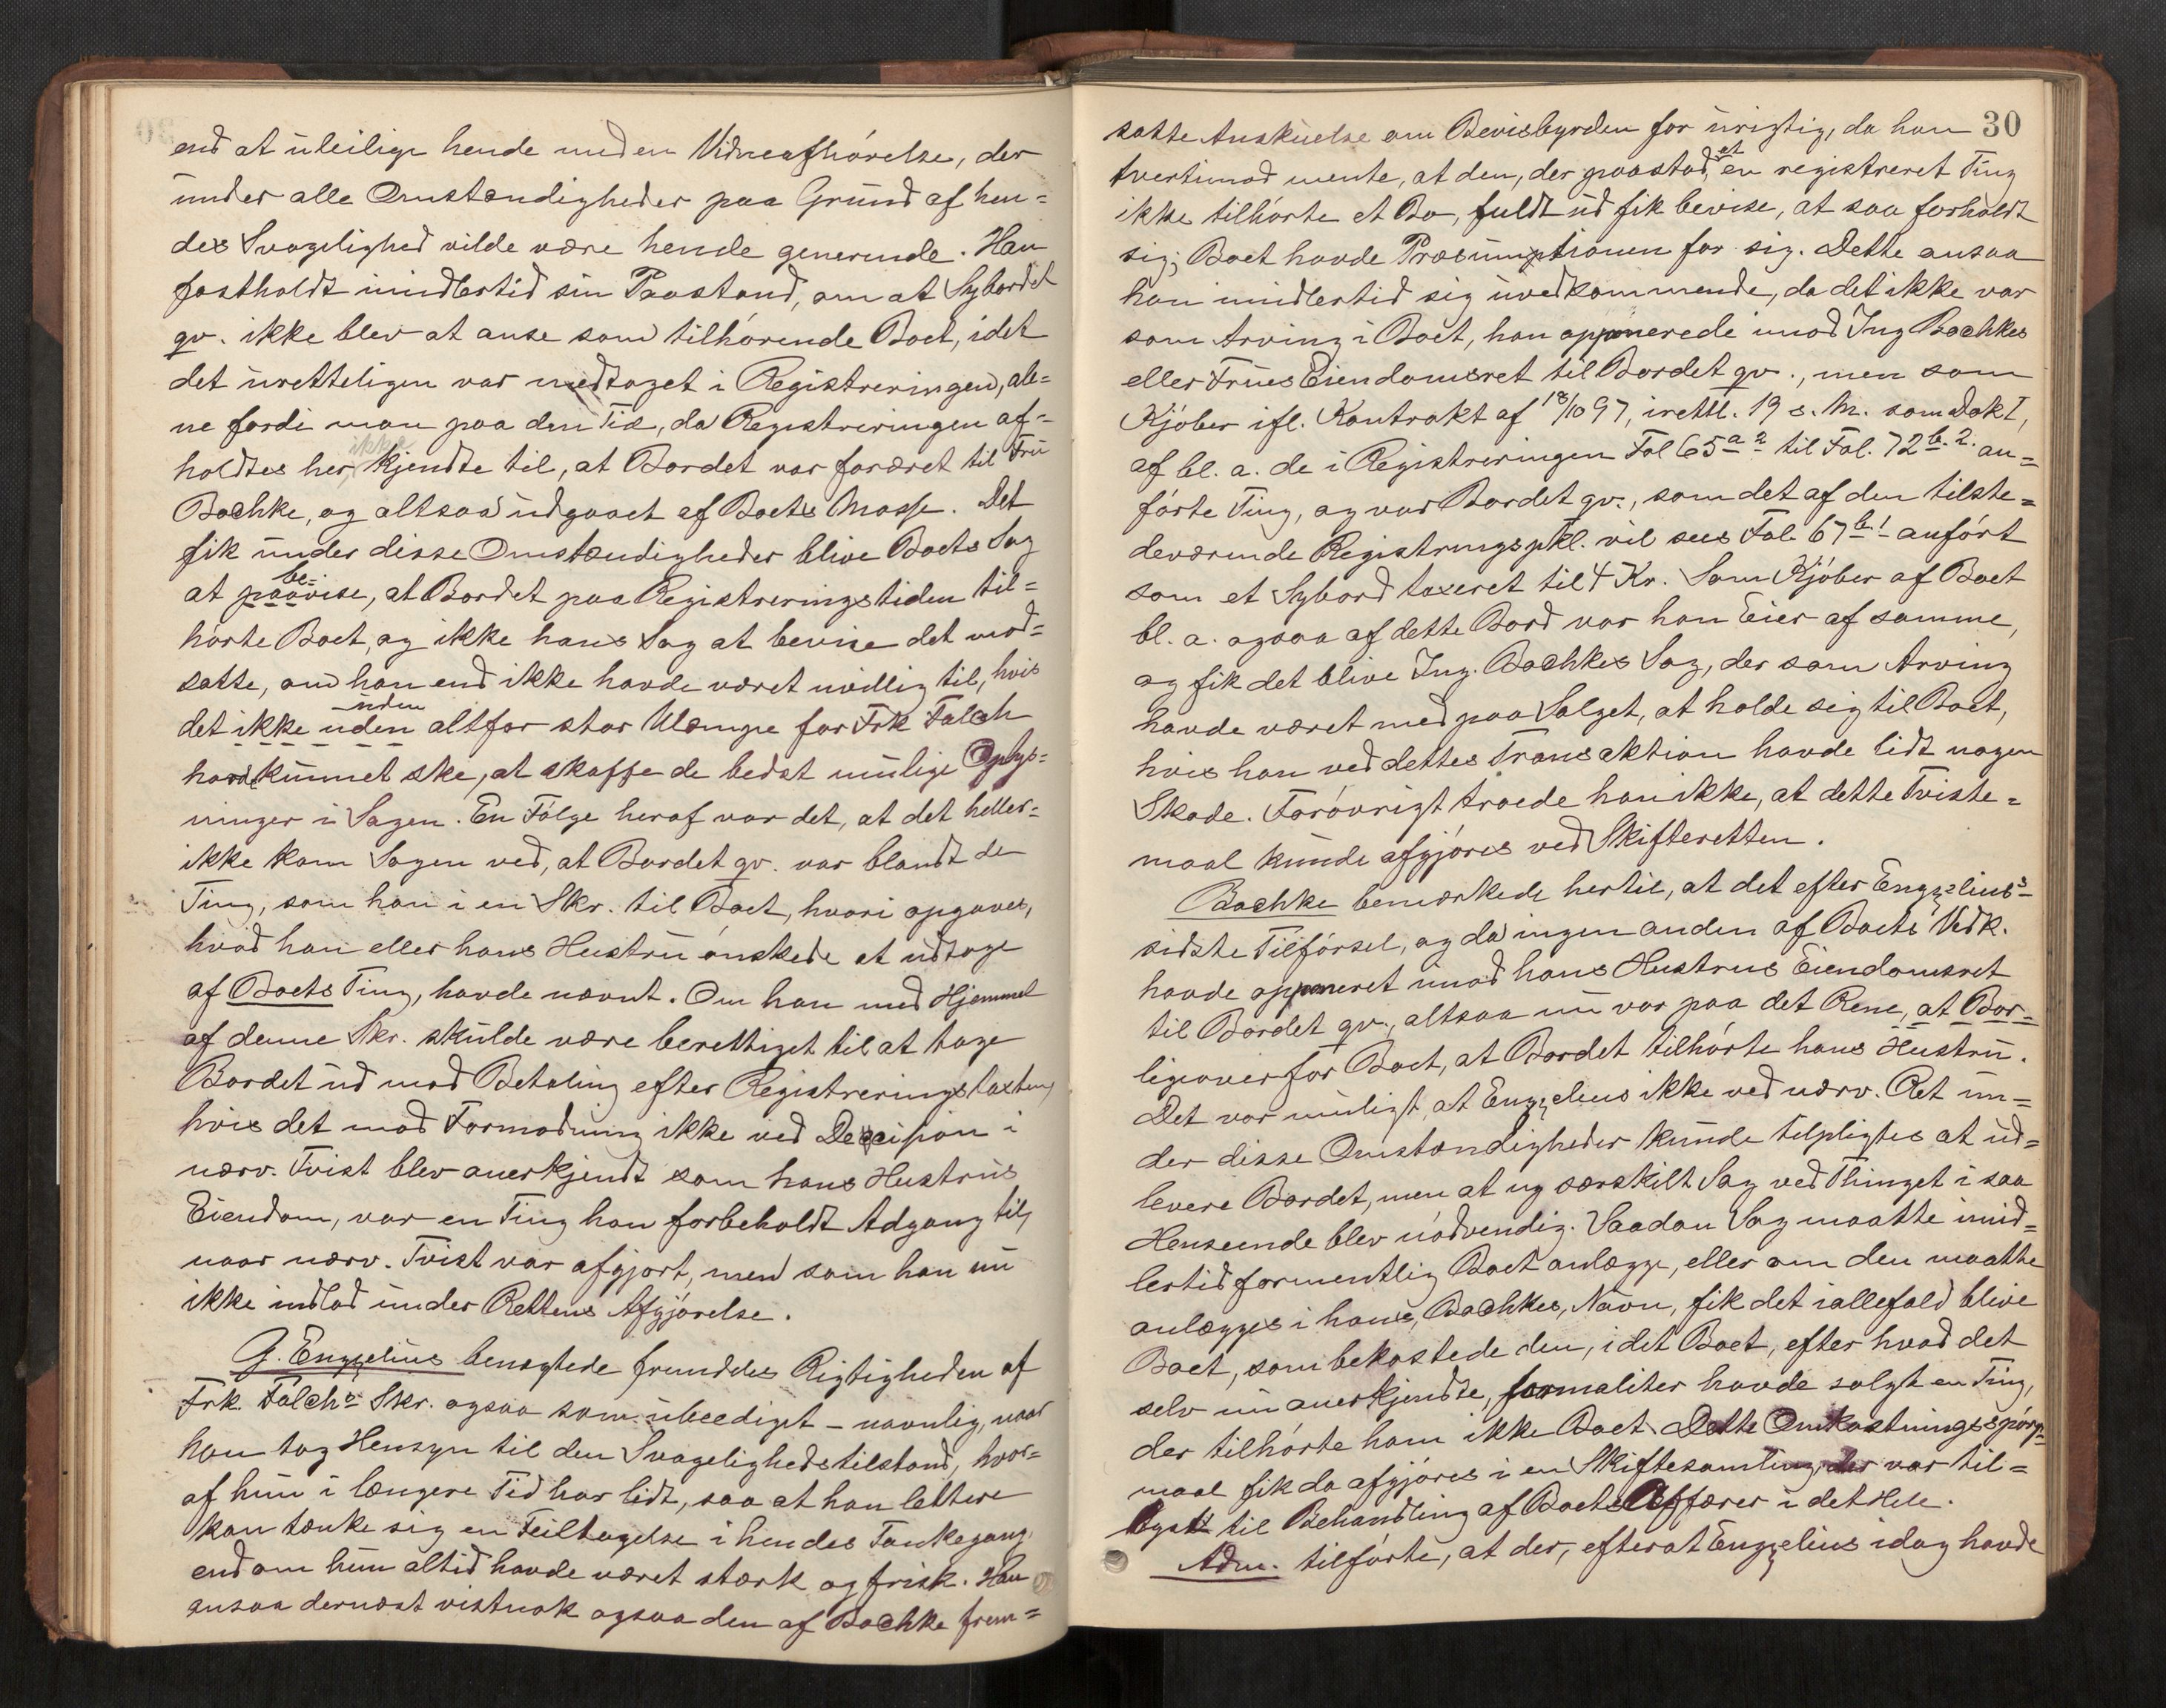 end at uleilige hende med en Vidneafhørelse, der
under alle Omstændigheder paa Grund af hen=
des Svagelighed vilde være hende generende. Han
fastholdt imidlertid sin Paastand, om at Sybordet
qv. ikke blev at anse som tilhørende Boet, idet
det uretteligen var medtaget i Registreringen, ale=
ne fordi man paa den Tid, da Registreringen af=
holdtes her, ikke kjendte til, at Bordet var foræret til Fru
Bachke, og altsaa udgaaet af Boets Masse. Det
fik under disse Omstændigheder blive Boets Sag
at be= paavise, at Bordet paa Registreringstiden til=
hørte Boet, og ikke hans Sag at bevise det mod=
satte, om han end ikke havde været uvillig til, hvis
det ikke uden uden altfor stor Ulæmpe for Frk Falch
havde kunnet ske, at skaffe de bedst mulige Oplys=
ninger i Sagen. En Følge heraf var det, at det heller=
ikke kom Sagen ved, at Bordet qv. var blandt de
Ting, som han i en Skr. til Boet, hvori opgaves,
hvad han eller hans Hustru ønskede at udtage
af Boets Ting, havde nævnt. Om han med Hjemmel
af denne Skr. skulde være berettiget til at tage
Bordet ud mod Betaling efter Registreringstaxten,
hvis det mod Formodning ikke ved Decision i
nærv. Tvist blev anerkjendt som hans Hustrus
Eiendom, var en Ting han forbeholdt Adgang til,
naar nærv. Tvist var afgjort, men som han nu
ikke indlod under Rettens Afgjørelse.
G. Engzelius benegtede fremdeles Rigtigheden af
Frk. Falchs Skr. ogsaa som ubeediget – navnlig, naar
han tog Hensyn til den Svagelighedstilstand, hvor=
af hun i længere Tid har lidt, saa at han lettere
kan tænke sig en Feiltagelse i hendes Tankegang,
end om hun altid havde været stærk og frisk. Han
ansaa dernæst vistnok ogsaa den af Bachke frem=
30
satte Anskuelse om Bevisbyrden for urigtig, da han
tvertimod mente, at den, der paastod, at en registreret Ting
ikke tilhørte et Bo, fuldt ud fik bevise, at saa forholdt
sig; Boet havde Præsumptionen for sig. Dette ansaa
han imidlertid sig uvedkommende, da det ikke var
som Arving i Boet, han opponerede imod Ing Bachkes
eller Frues Eiendomsret til Bordet qv., men som
Kjøber ifl. Kontrakt af 18/10 97, irettl. 19 s. M. som Dokt I,
af bl. a. de i Registreringen Fol 65 a 2 til Fol. 72 b. 2. an=
førte Ting, og var Bordet qv., som det af den tilste=
deværende Registrngsptkl. vil sees Fol. 67 b. 1 anført
som et Sybord taxeret til 4 Kr. Som Kjøber af Boet
bl. a. ogsaa af dette Bord var han Eier af samme,
og fik det blive Ing. Bachkes Sag, der som Arving
havde været med paa Salget, at holde sig til Boet,
hvis han ved dettes Transaktion havde lidt nogen
Skade. Forøvrigt troede han ikke, at dette Tviste=
maal kunde afgjøres ved Skifteretten.
Bachke bemærkede hertil, at det efter Engzelius's
sidste Tilførsel, og da ingen anden af Boets Vedk.
havde opponeret imod hans Hustrus Eiendomsret
til Bordet qv., altsaa nu var paa det Rene, at Bor=
ligeoverfor Boet, at Bordet tilhørte hans Hustru.
Det var muligt, at Engzelius ikke ved nærv. Ret un=
der disse Omstændigheder kunde tilpligtes at ud=
levere Bordet, men at ny særskilt Sag ved Thinget i saa
Henseende blev nødvendig. Saadan Sag maatte imid=
lertid formentlig Boet anlægge, eller om den maatte
anlægges i hans, Bachkes, Navn, fik det iallefald blive
Boet, som bekostede den, idet Boet, efter hvad det
selv nu anerkjendte, formaliter havde solgt en Ting,
der tilhørte ham ikke Boet. Dette Omkostningsspørgs=
maal fik da afgjøres i en Skiftesamling, der var til=
lyst til Behandling af Boets Affærer i det Hele.
Adm. tilførte, at der, efterat Engzelius idag havde